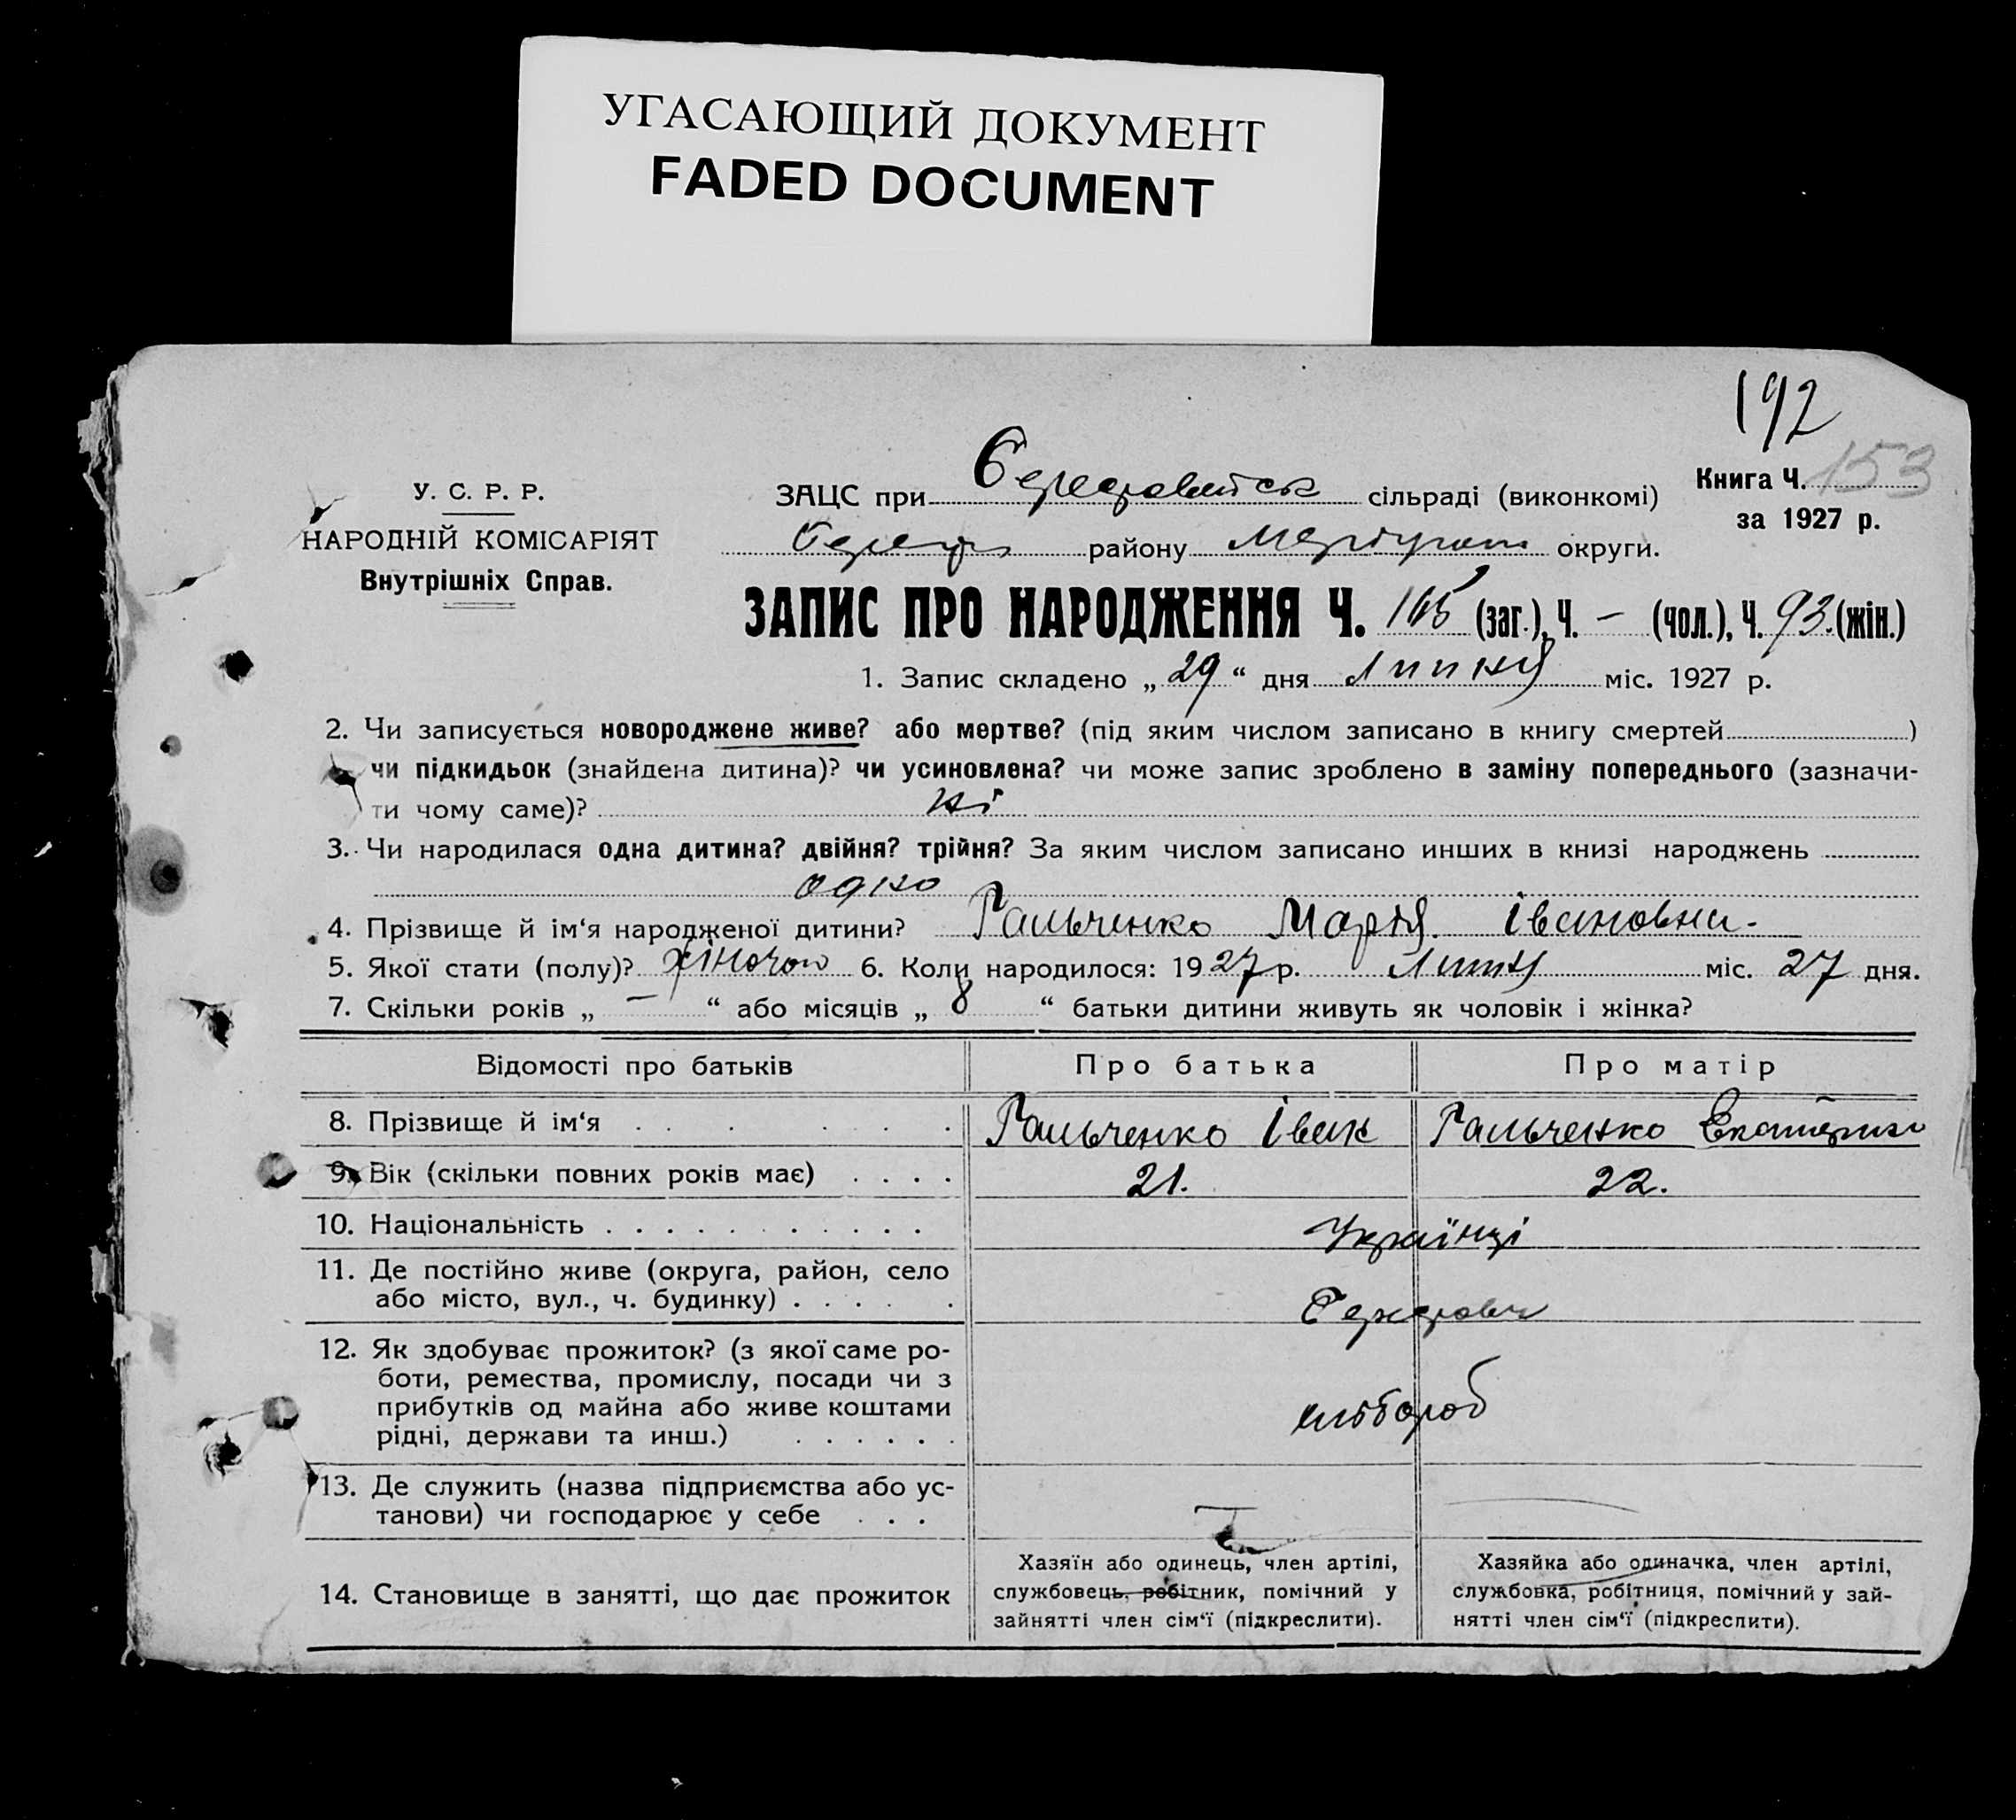 УГАСАЮЩИЙ ДОКУМЕНТ
FADED DOCUMENT
192
Книга Ч. 153
за 1927 р.
У. С. Р. Р.
НАРОДНІЙ КОМІСАРІЯТ
Внутрішніх Справ.
ЗАЦС при сільраді (виконкомі)
району округи.
ЗАПИС ПРО НАРОДЖЕННЯ Ч. 165 (заг.), Ч. – (чол.), Ч. 93. (жін.)
1. Запис складено „ 29 “ дня Липня міс. 1927 р.
2. Чи записується новороджене живе? або мертве? (під яким числом записано в книгу смертей )
чи підкидьок (знайдена дитина)? чи усиновлена? чи може запис зроблено в заміну попереднього (зазначи-
ти чому саме)? ні
3. Чи народилася одна дитина? двійня? трійня? За яким числом записано инших в книзі народжень
одно
4. Прізвище й ім‘я народженої дитини? Гальченко Марія Івановна
5. Якої стати (полу)? жіночого 6. Коли народилося: 1927 р. Липня міс. 27 дня.
7. Скільки років „ – “ або місяців „ 8 “ батьки дитини живуть як чоловік і жінка?
Відомості про батьків Про батька Про матір
8. Прізвище й ім‘я Гальченко Іван Гальченко Екатерина
9. Вік (скільки повних років має) 21. 22.
10. Національність Українці
11. Де постійно живе (округа, район, село
або місто, вул., ч. будинку)
12. Як здобуває прожиток? (з якої саме ро-
боти, ремества, промислу, посади чи з
прибутків од майна або живе коштами
рідні, держави та инш.) хлібороб
13. Де служить (назва підприємства або ус-
танови) чи господарює у себе
14. Становище в занятті, що дає прожиток
Хазяїн або одинець, член артілі,
службовець, робітник, помічний у
зайнятті член сім‘ї (підкреслити).
Хазяйка або одиначка, член артілі,
службовка, робітниця, помічний у зай-
нятті член сім‘ї (підкреслити).